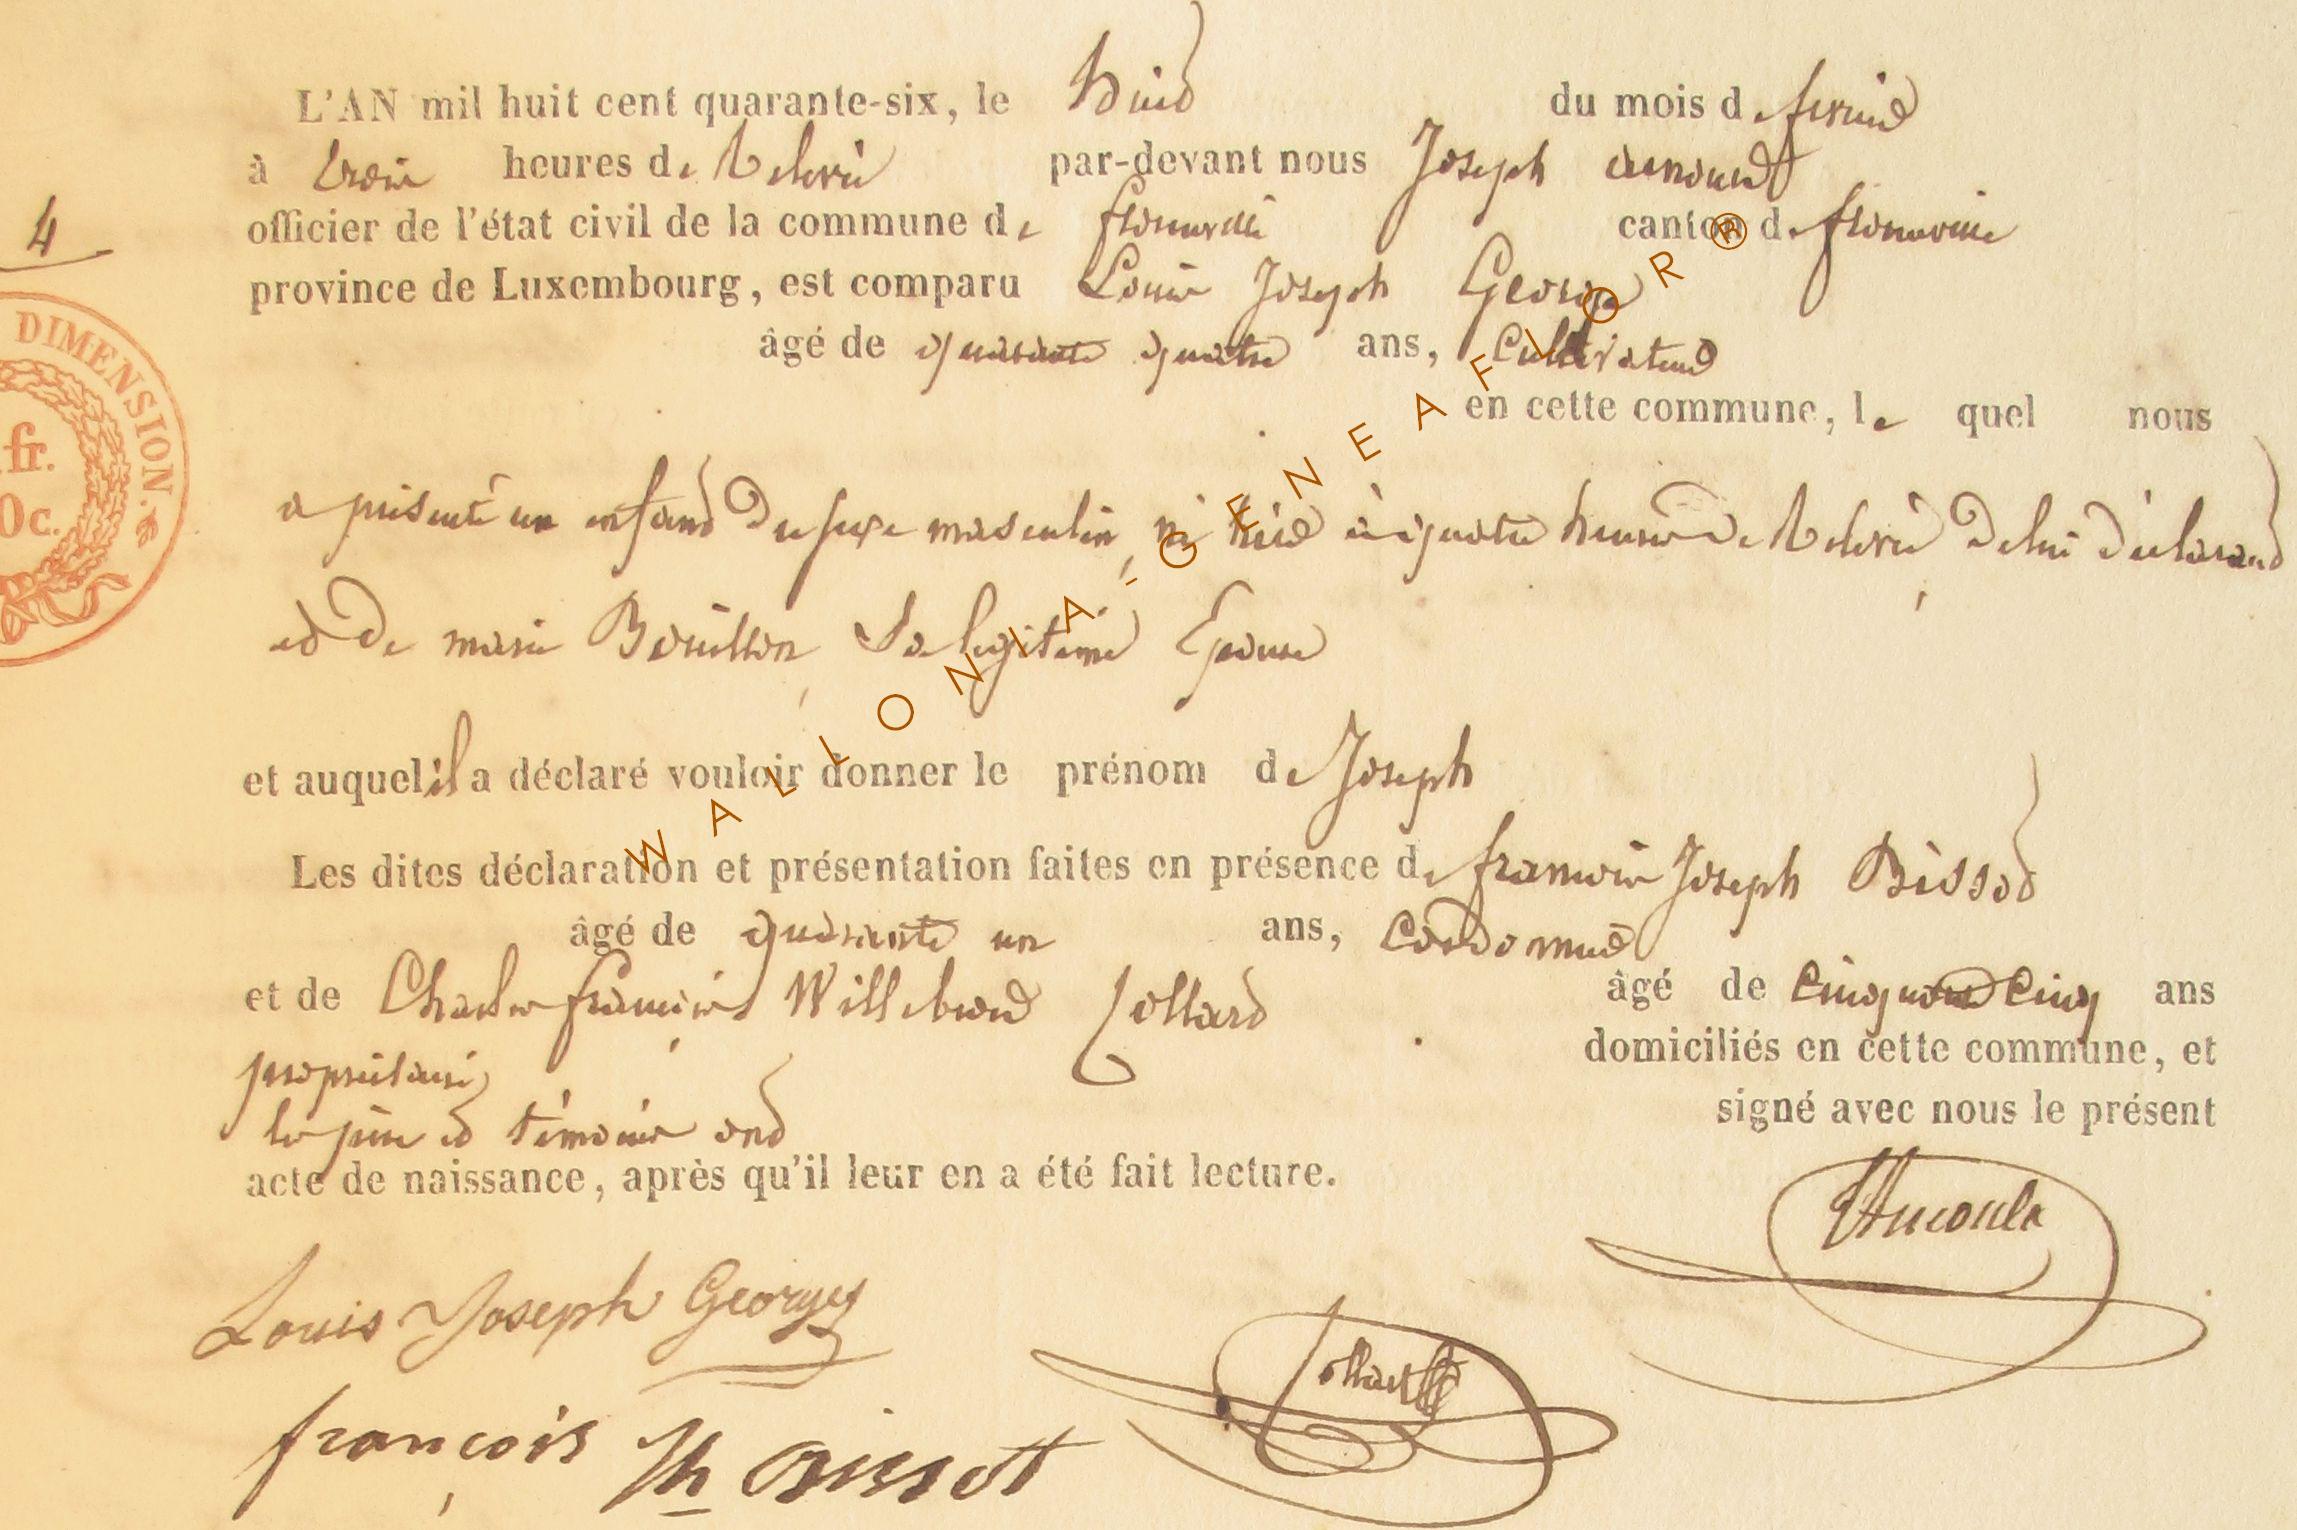 4
DIMENSION.
fr.
0c.
L'AN mil huit cent quarante-six, le huit du mois de fevrier
à trois heures de Relevée par-devant nous Joseph
officier de l'état civil de la commune de florenville canton de florenville
province de Luxembourg, est comparu Louis Joseph Georges
âgé de quarante quatre ans, Cultivateur
en cette commune, le quel nous
a présenté un enfant du sexe masculin, né hier à quatre heures de Relevée, de lui déclarant
et de marie Bouillon, Sa legitime Epouse
et auquel il a déclaré vouloir donner le prénom de Joseph
Les dites déclaration et présentation faites en présence de francois Joseph Bissot
âgé de quarante un ans, Cordonnier
et de Charles francois Willebrord Collard âgé de Cinquante Cinq ans
propriétaire domiciliés en cette commune, et
les père et témoins ont signé avec nous le présent
acte de naissance, après qu'il leur en a été fait lecture.
Louis Joseph Georges
françois Jh Bissot
WALLONIA-GENEAFLOR®